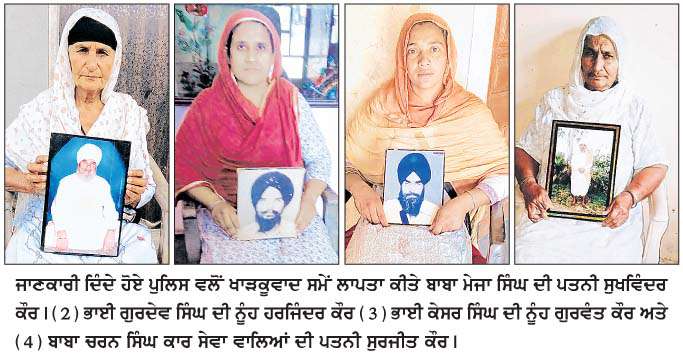 ਜਾਣਕਾਰੀ ਦਿੰਦੇ ਹੋਏ ਪੁਲਿਸ ਵਲੋਂ ਖਾੜਕੂਵਾਦ ਸਮੇਂ ਲਾਪਤਾ ਕੀਤੇ ਬਾਬਾ ਮੇਜਾ ਸਿੰਘ ਦੀ ਪਤਨੀ ਸੁਖਵਿੰਦਰ
ਕੌਰ। (2) ਭਾਈ ਗੁਰਦੇਵ ਸਿੰਘ ਦੀ ਨੂੰਹ ਹਰਜਿੰਦਰ ਕੌਰ (3) ਭਾਈ ਕੇਸਰ ਸਿੰਘ ਦੀ ਨੂੰਹ ਗੁਰਵੰਤ ਕੌਰ ਅਤੇ
(4) ਬਾਬਾ ਚਰਨ ਸਿੰਘ ਕਾਰ ਸੇਵਾ ਵਾਲਿਆਂ ਦੀ ਪਤਨੀ ਸੁਰਜੀਤ ਕੌਰ।